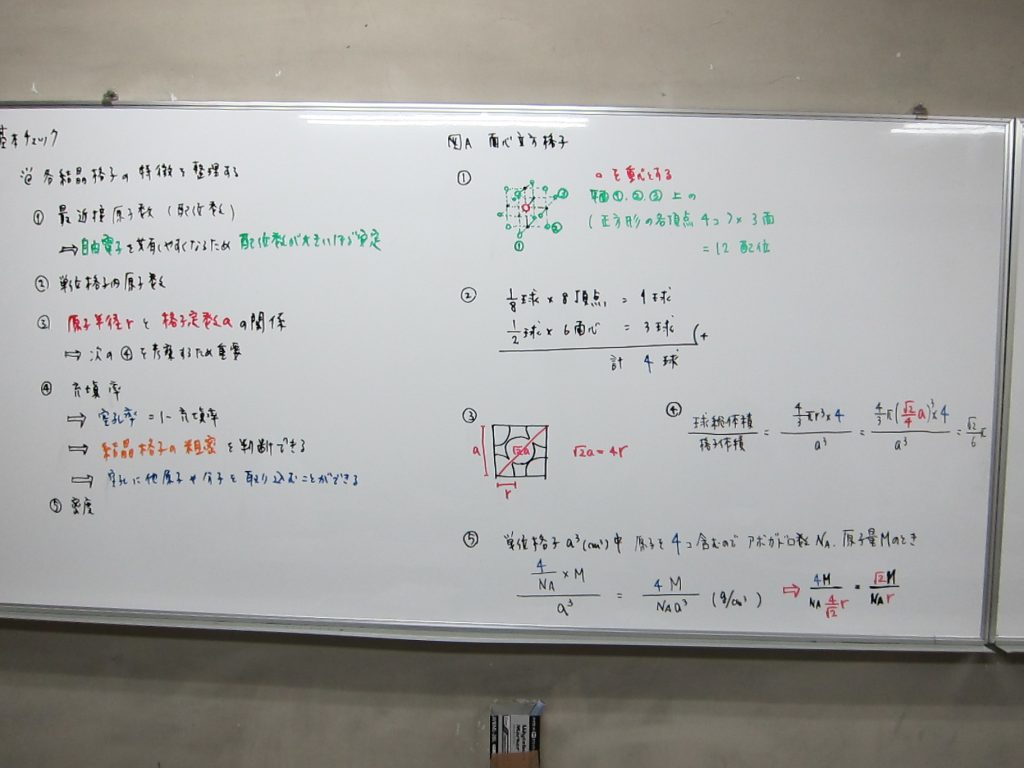 基本チェック
各結晶格子の特徴を整理する
① 最近接原子数 (配位数)
⇒ 自由電子を共有しやすくなるため 配位数が大きいほど安定
② 単位格子内原子数
③ 原子半径rと格子定数aの関係
⇒ 次の④を考察するため重要
④ 充填率
⇒ 空孔率 = 1- 充填率
⇒ 結晶格子の粗密を判断できる
⇒ 空孔に他原子や分子を取り込むことができる
⑤ 密度
図A 面心立方格子
①
①
②
③
を重心とする
平面①,②,③上の
(正方形の各頂点4コ) × 3面
= 12 配位
② 1/8球 × 8頂点 = 1球
1/2球 × 6面心 = 3球 (+
計 4球
③
a
√2a
r
√2a = 4r
④ 球総体積/格子体積 = 4/3πr³×4/a³ = 4/3π(√2/4 a)³×4/a³ = √2/6 π
⑤ 単位格子a³(cm³)中 原子を4コ含むので アボガドロ数NA、原子量Mのとき
4/NA × M / a³ = 4M/NAa³ (g/cm³) ⇒ 4M/NA 4/√2 r = √2M/NA r